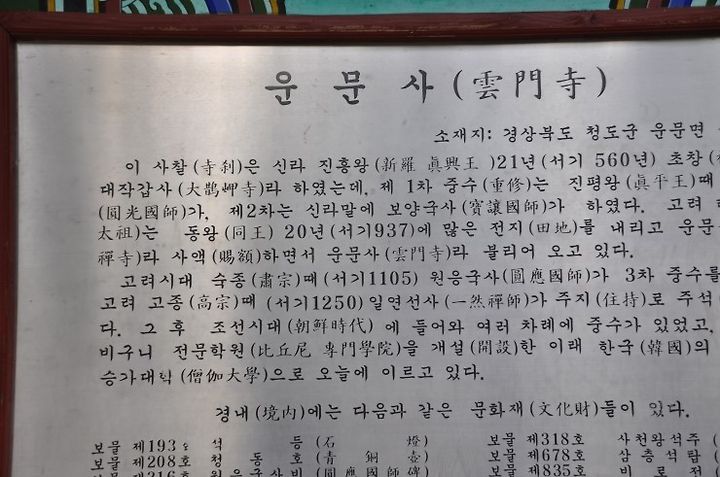 운 문 사 (雲門寺)
소재지: 경상북도 청도군 운문면
이 사찰(寺刹)은 신라 진흥왕(新羅 眞興王)21년(서기 560년) 초창(
대작갑사(大鵲岬寺)라 하였는데, 제 1차 중수(重修)는 진평왕(眞平王)때
(圓光國師)가, 제2차는 신라말에 보양국사(寶讓國師)가 하였다. 고려
太祖)는 동왕(同王) 20년(서기937)에 많은 전지(田地)를 내리고 운문
禪寺)라 사액(賜額)하면서 운문사(雲門寺)라 불리어 오고 있다.
고려시대 숙종(肅宗)때(서기1105) 원응국사(圓應國師)가 3차 중수를
고려 고종(高宗)때 (서기1250)일연선사(一然禪師)가 주지(住持)로 주석
다. 그 후 조선시대(朝鮮時代) 에 들어와 여러 차례에 중수가 있었고,
비구니 전문학원(比丘尼 專門學院)을 개설(開設)한 이래 한국(韓國)의
승가대학(僧伽大學)으로 오늘에 이르고 있다.
경내(境內)에는 다음과 같은 문화재(文化財)들이 있다.
보물 제193호 석 등(石 燈) 보물 제318호 사천왕석주(
보물 제208호 청 동 호(青 銅 壺) 보물 제678호 삼층석탑(
보물 제316호 원응국사비(圓應國師碑) 보물 제835호 비로전(